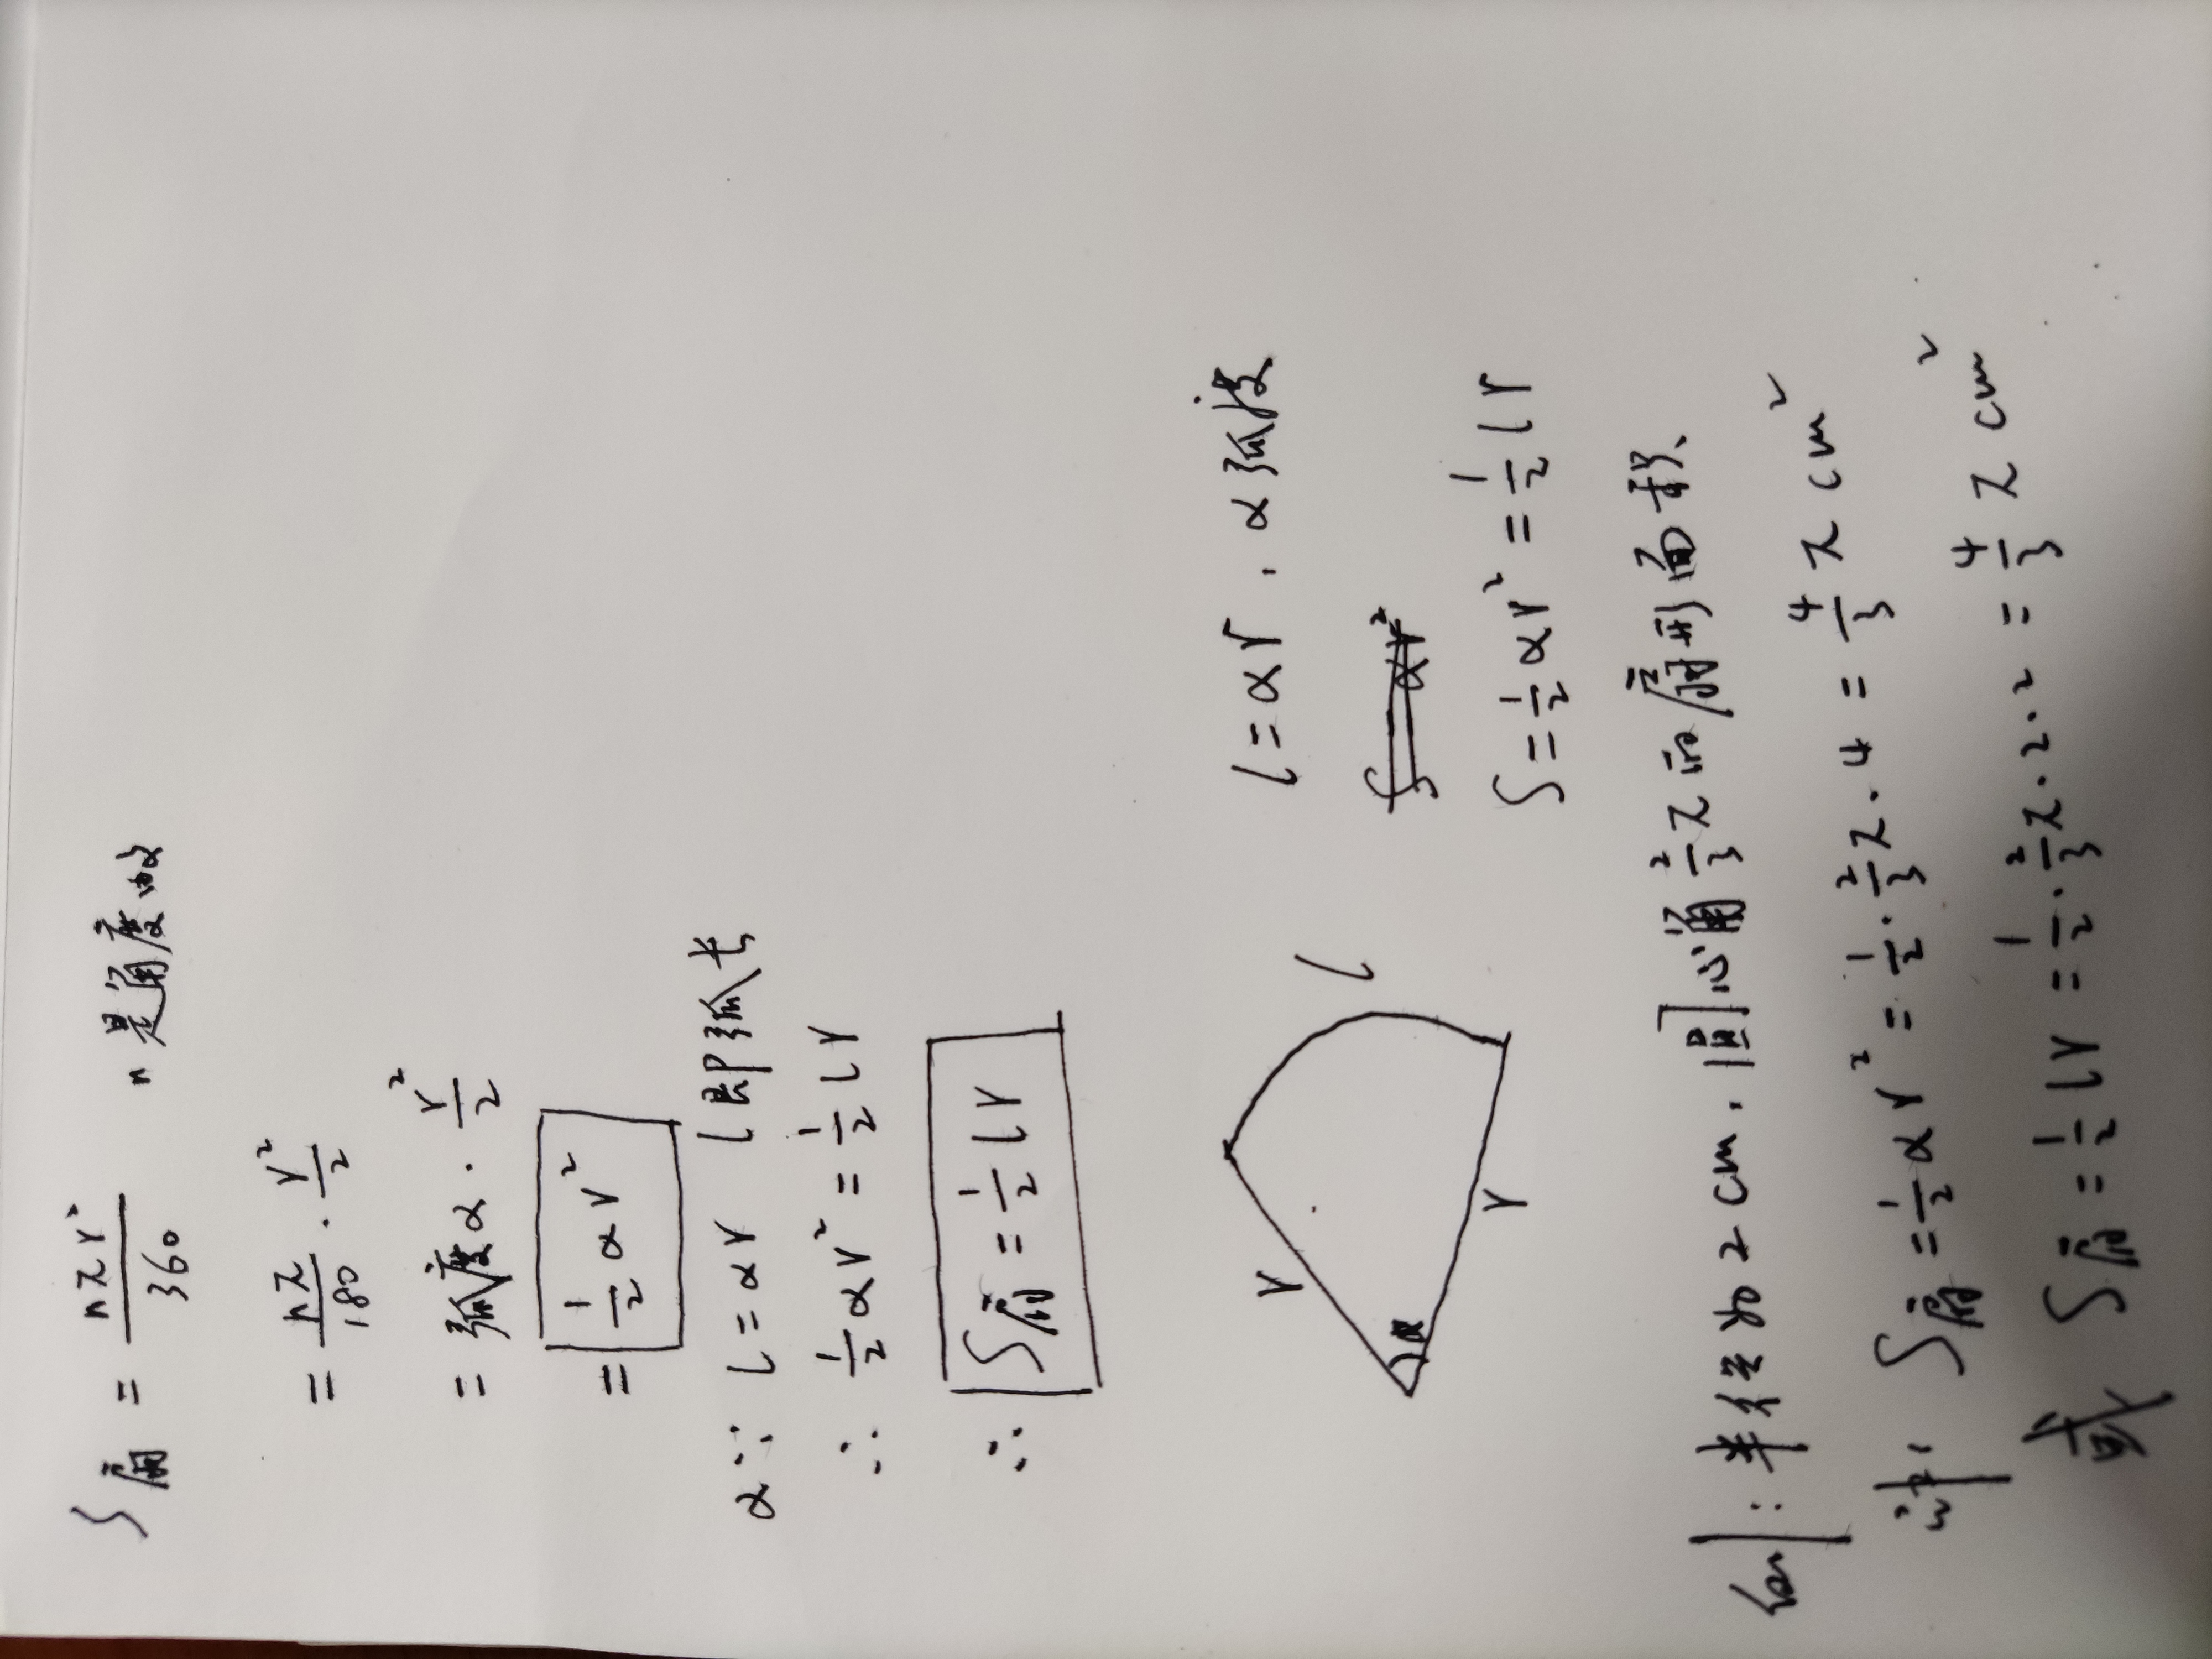 S扇 = nπr²/360 n是角度数
= nπ/180 · r²/2
= 弧度α · r²/2
= 1/2 αr²
α∵ l=αr l即弧长
∴ 1/2 αr² = 1/2 lr
∴ S扇 = 1/2 lr
r
l
α
r
l=αr, α弧度
S αr²
S = 1/2 αr² = 1/2 lr
例: 半径为2cm, 圆心角 2/3 π的扇形面积
S扇 = 1/2 αr² = 1/2 · 2/3 π · 4 = 4/3 π cm²
或 S扇 = 1/2 lr = 1/2 · 2/3 π · 2 · 2 = 4/3 π cm²